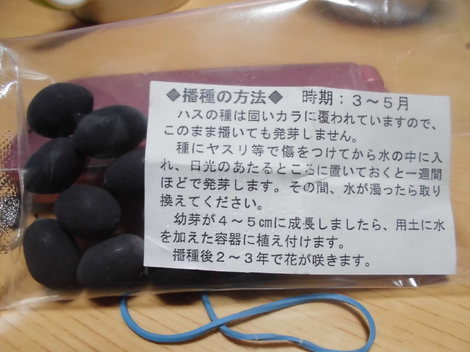 ◆播種の方法◆　時期：３～５月
　ハスの種は固いカラに覆われていますので、
このまま播いても発芽しません。
　種にヤスリ等で傷をつけてから水の中に入
れ、日光のあたるところに置いておくと一週間
ほどで発芽します。その間、水が濁ったら取り
換えてください。
　幼芽が４～５㎝に成長しましたら、用土に水
を加えた容器に植え付けます。
　播種後２～３年で花が咲きます。